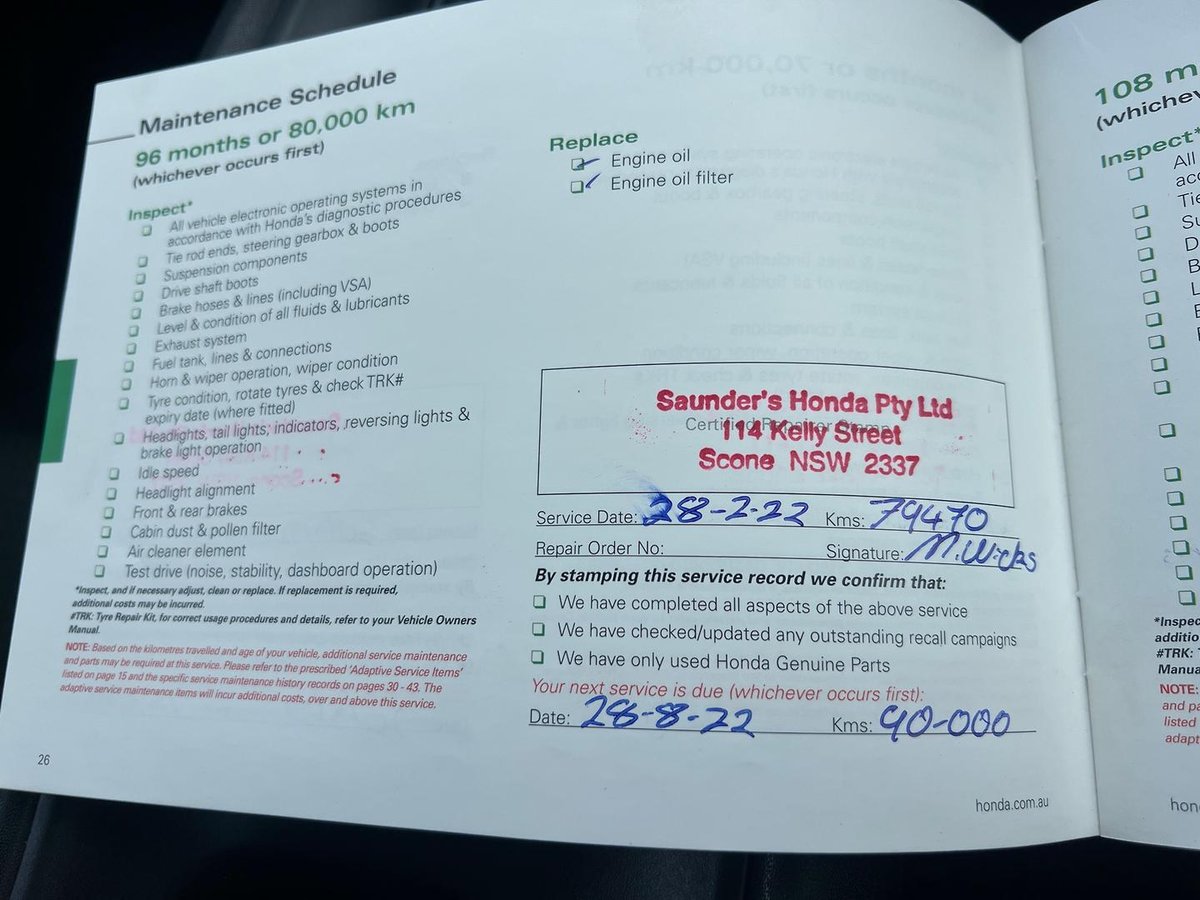 Maintenance Schedule
96 months or 80,000 km
(whichever occurs first)
Inspect*
All vehicle electronic operating systems in
accordance with Honda's diagnostic procedures
Tie rod ends, steering gearbox & boots
Suspension components
Drive shaft boots
Brake hoses & lines (including VSA)
Level & condition of all fluids & lubricants
Exhaust system
Fuel tank, lines & connections
Horn & wiper operation, wiper condition
Tyre condition, rotate tyres & check TRK#
expiry date (where fitted)
Headlights, tail lights, indicators, reversing lights &
brake light operation
Idle speed
Headlight alignment
Front & rear brakes
Cabin dust & pollen filter
Air cleaner element
Test drive (noise, stability, dashboard operation)
*Inspect, and if necessary adjust, clean or replace. If replacement is required,
additional costs may be incurred.
#TRK: Tyre Repair Kit, for correct usage procedures and details, refer to your Vehicle Owners
Manual.
NOTE: Based on the kilometres travelled and age of your vehicle, additional service maintenance
and parts may be required at this service. Please refer to the prescribed 'Adaptive Service Items'
listed on page 15 and the specific service maintenance history records on pages 30 - 43. The
adaptive service maintenance items will incur additional costs, over and above this service.
26
Replace
Engine oil
Engine oil filter
Saunder's Honda Pty Ltd
Certified Repairer Stamp
114 Kelly Street
Scone NSW 2337
Service Date: 28-2-22 Kms: 79470
Repair Order No: Signature: M.Wicks
By stamping this service record we confirm that:
We have completed all aspects of the above service
We have checked/updated any outstanding recall campaigns
We have only used Honda Genuine Parts
Your next service is due (whichever occurs first):
Date: 28-8-22 Kms: 90-000
honda.com.au
108 m
(whichev
Inspect*
All
acc
Tie
Su
D
B
L
*Inspec
additio
#TRK:
Manua
NOTE:
and pa
listed
adapt
hon